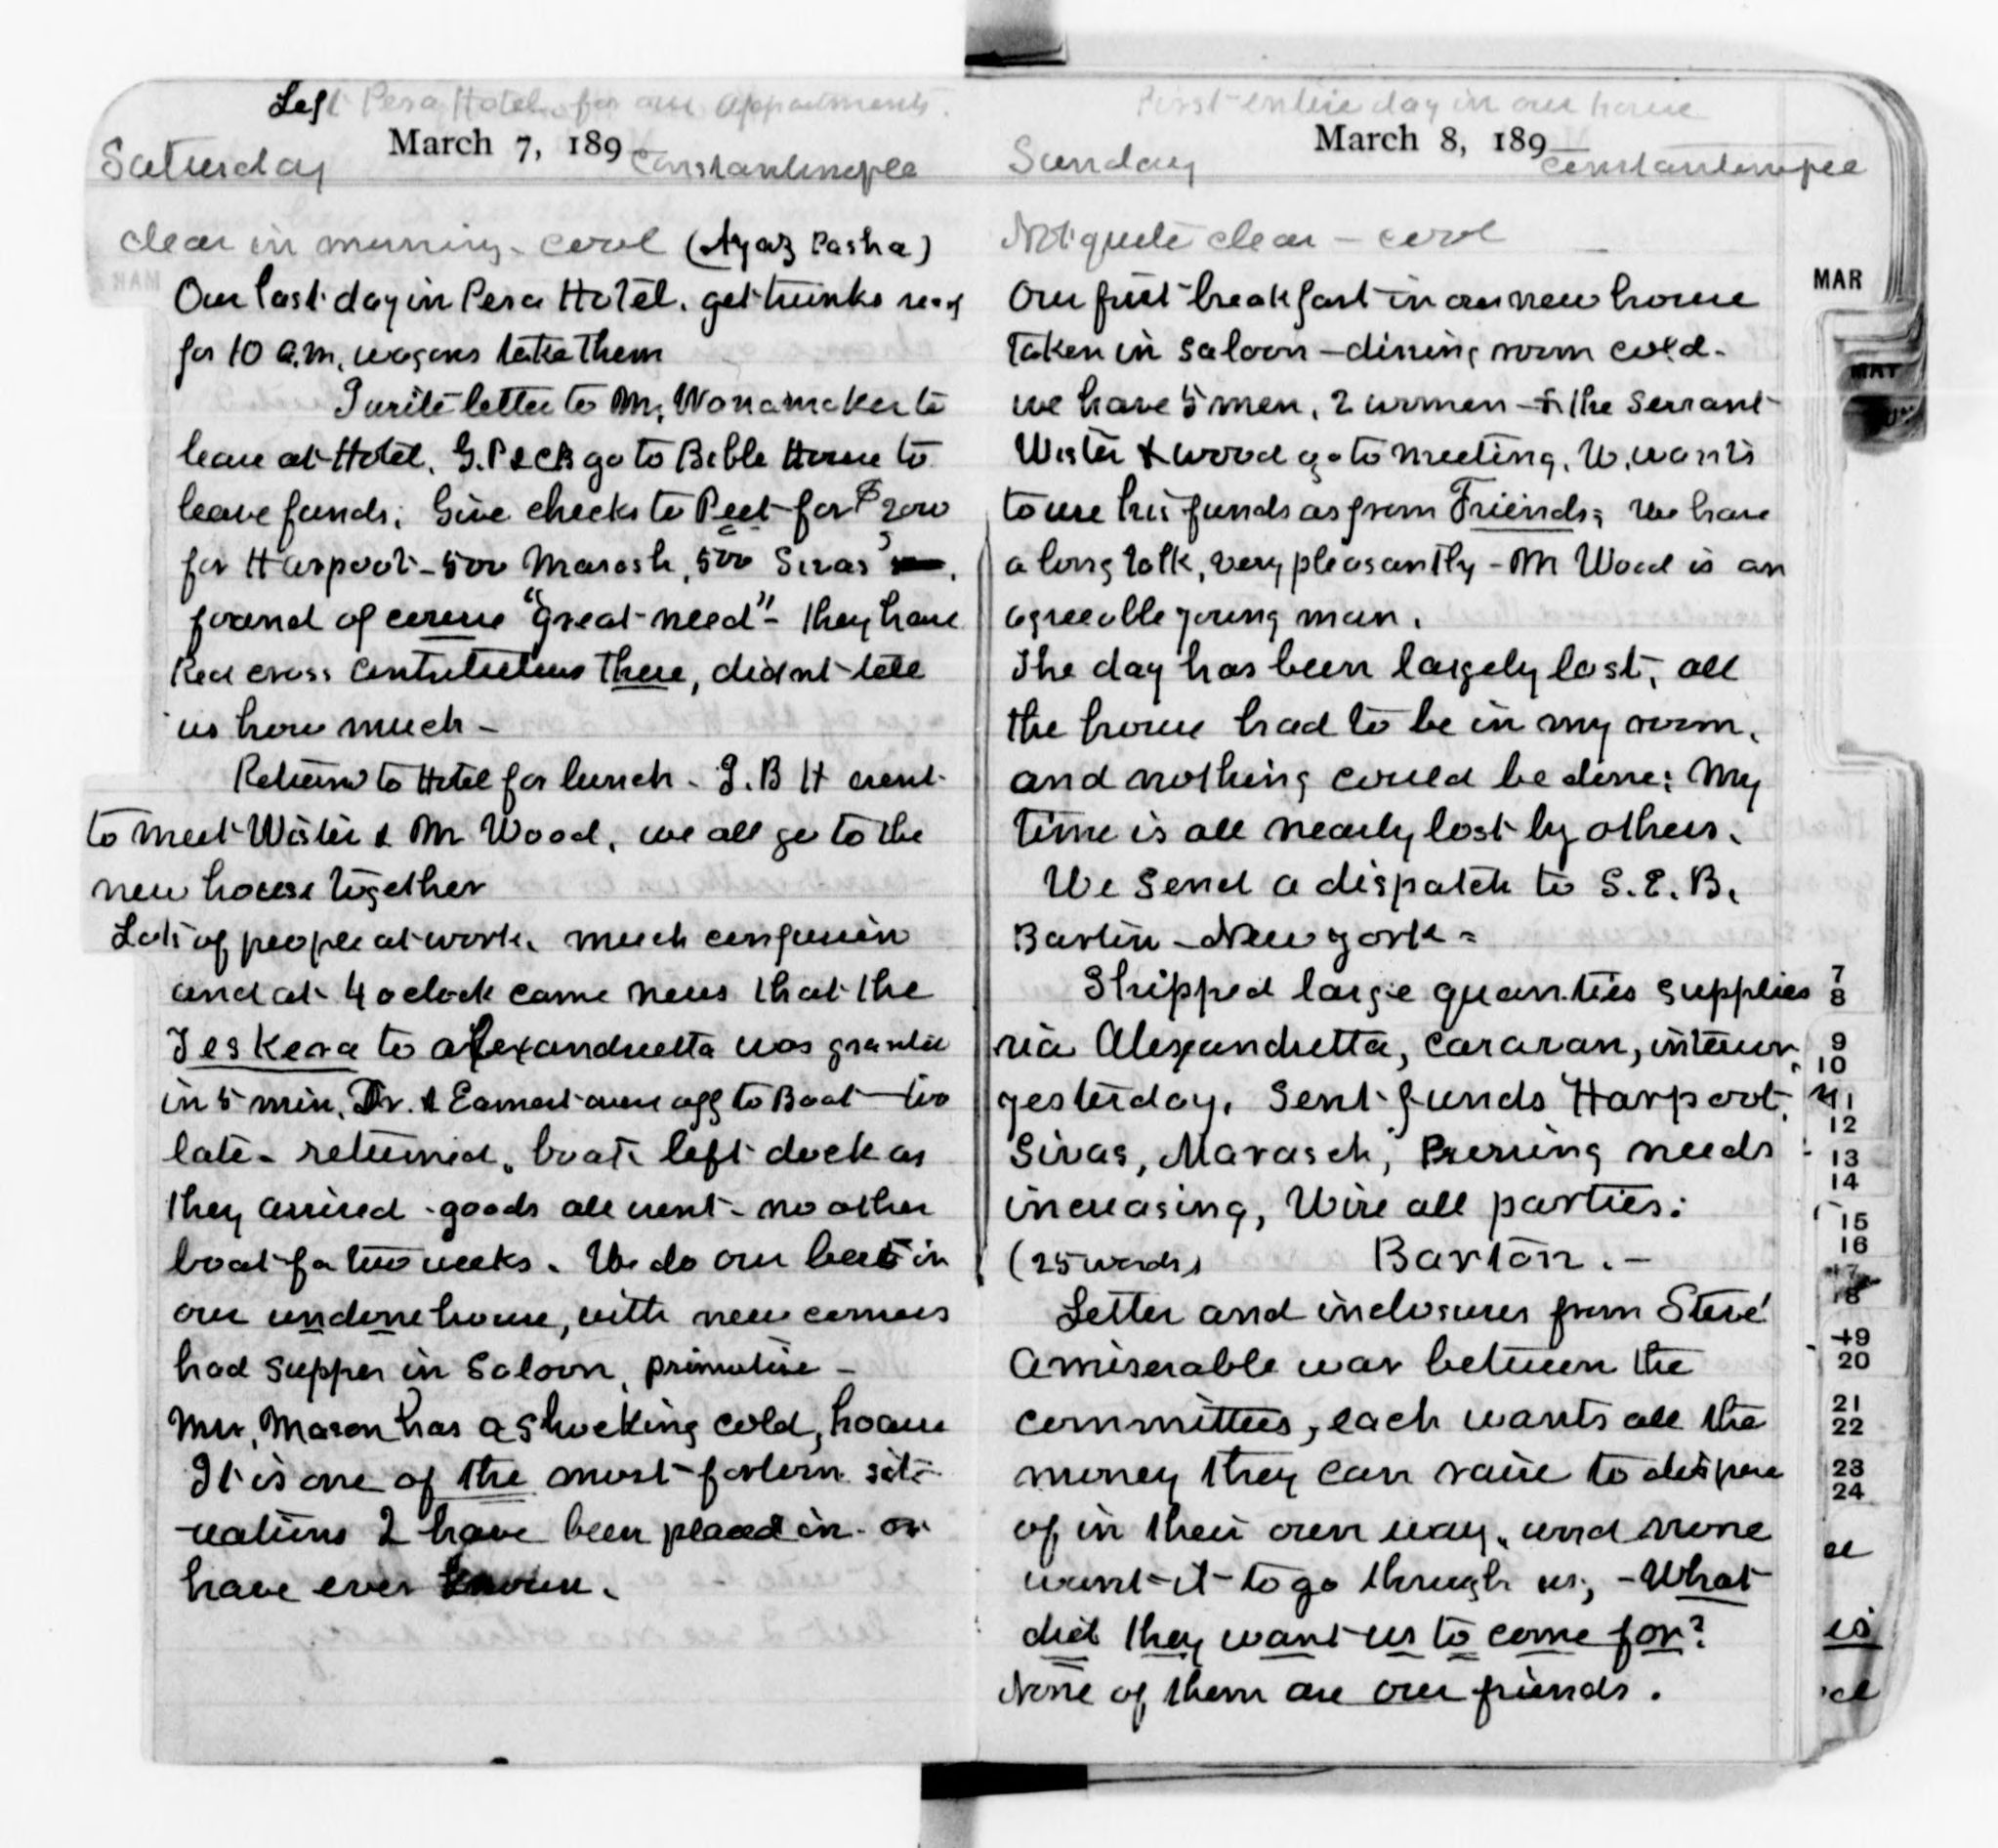 Left Pera Hotel for our appartments.
March 7, 189
Saturday Constantinople
Clear in morning - cool (Ayaz Pasha)
Our last day in Pera Hotel. get trunks ready
for 10 a.m. wagons take them
I write letter to Mr. Wanamaker to
leave at Hotel. G.P & CB go to Bible House to
leave funds. Give checks to Peet for $2000
for Harpoot - 500 Marash, 500 Sivas
found of course "great need" - they have
Red cross contributions there, didnt tell
us how much -
Return to Hotel for lunch - J.B H went
to meet Wistar & Mr Wood, we all go to the
new house together
Lots of people at work. much confusion
and at 4 oclock came news that the
Teskera to alexandretta was granted
in 5 min. Dr. & Earnest were off to Boat - too
late - returned. boat left dock as
they arrived - goods all went - no other
boat for two weeks. We do our best in
our undone house, with new comers
had supper in Saloon, primative -
Mr. Mason has a shocking cold, hoarse
It is one of the most forlorn sit-
-uations I have been placed in - or
have ever known.
First entire day in our house
March 8, 189
Sunday Constantinople
Not quite clear - cool
Our first breakfast in our new house
Taken in saloon - dining room cold -
we have 5 men, 2 women - the servant
Wistar & Wood go to meeting. W. wants
to use his funds as from Friends; We have
a long talk, very pleasantly - Mr Wood is an
agreeable young man.
The day has been largely lost, all
the house had to be in my room,
and nothing could be done; My
time is all nearly lost by others.
We send a dispatch to S. E. B.
Barton - New york =
Shipped large quantities supplies
via Alexandretta, Caravan, interior,
yesterday. Sent funds Harpoot,
Sivas, Marasch, Pressing needs
increasing, Wire all parties:
(25 words) Barton. -
Letter and inclosures from Steve'
A miserable war between the
committees, each wants all the
money they can raise to dispose
of in their own way, and none
want it to go through us, - What
did they want us to come for?
None of them are our friends.
MAR
MAY
7
8
9
10
11
12
13
14
15
16
17
18
19
20
21
22
23
24
is